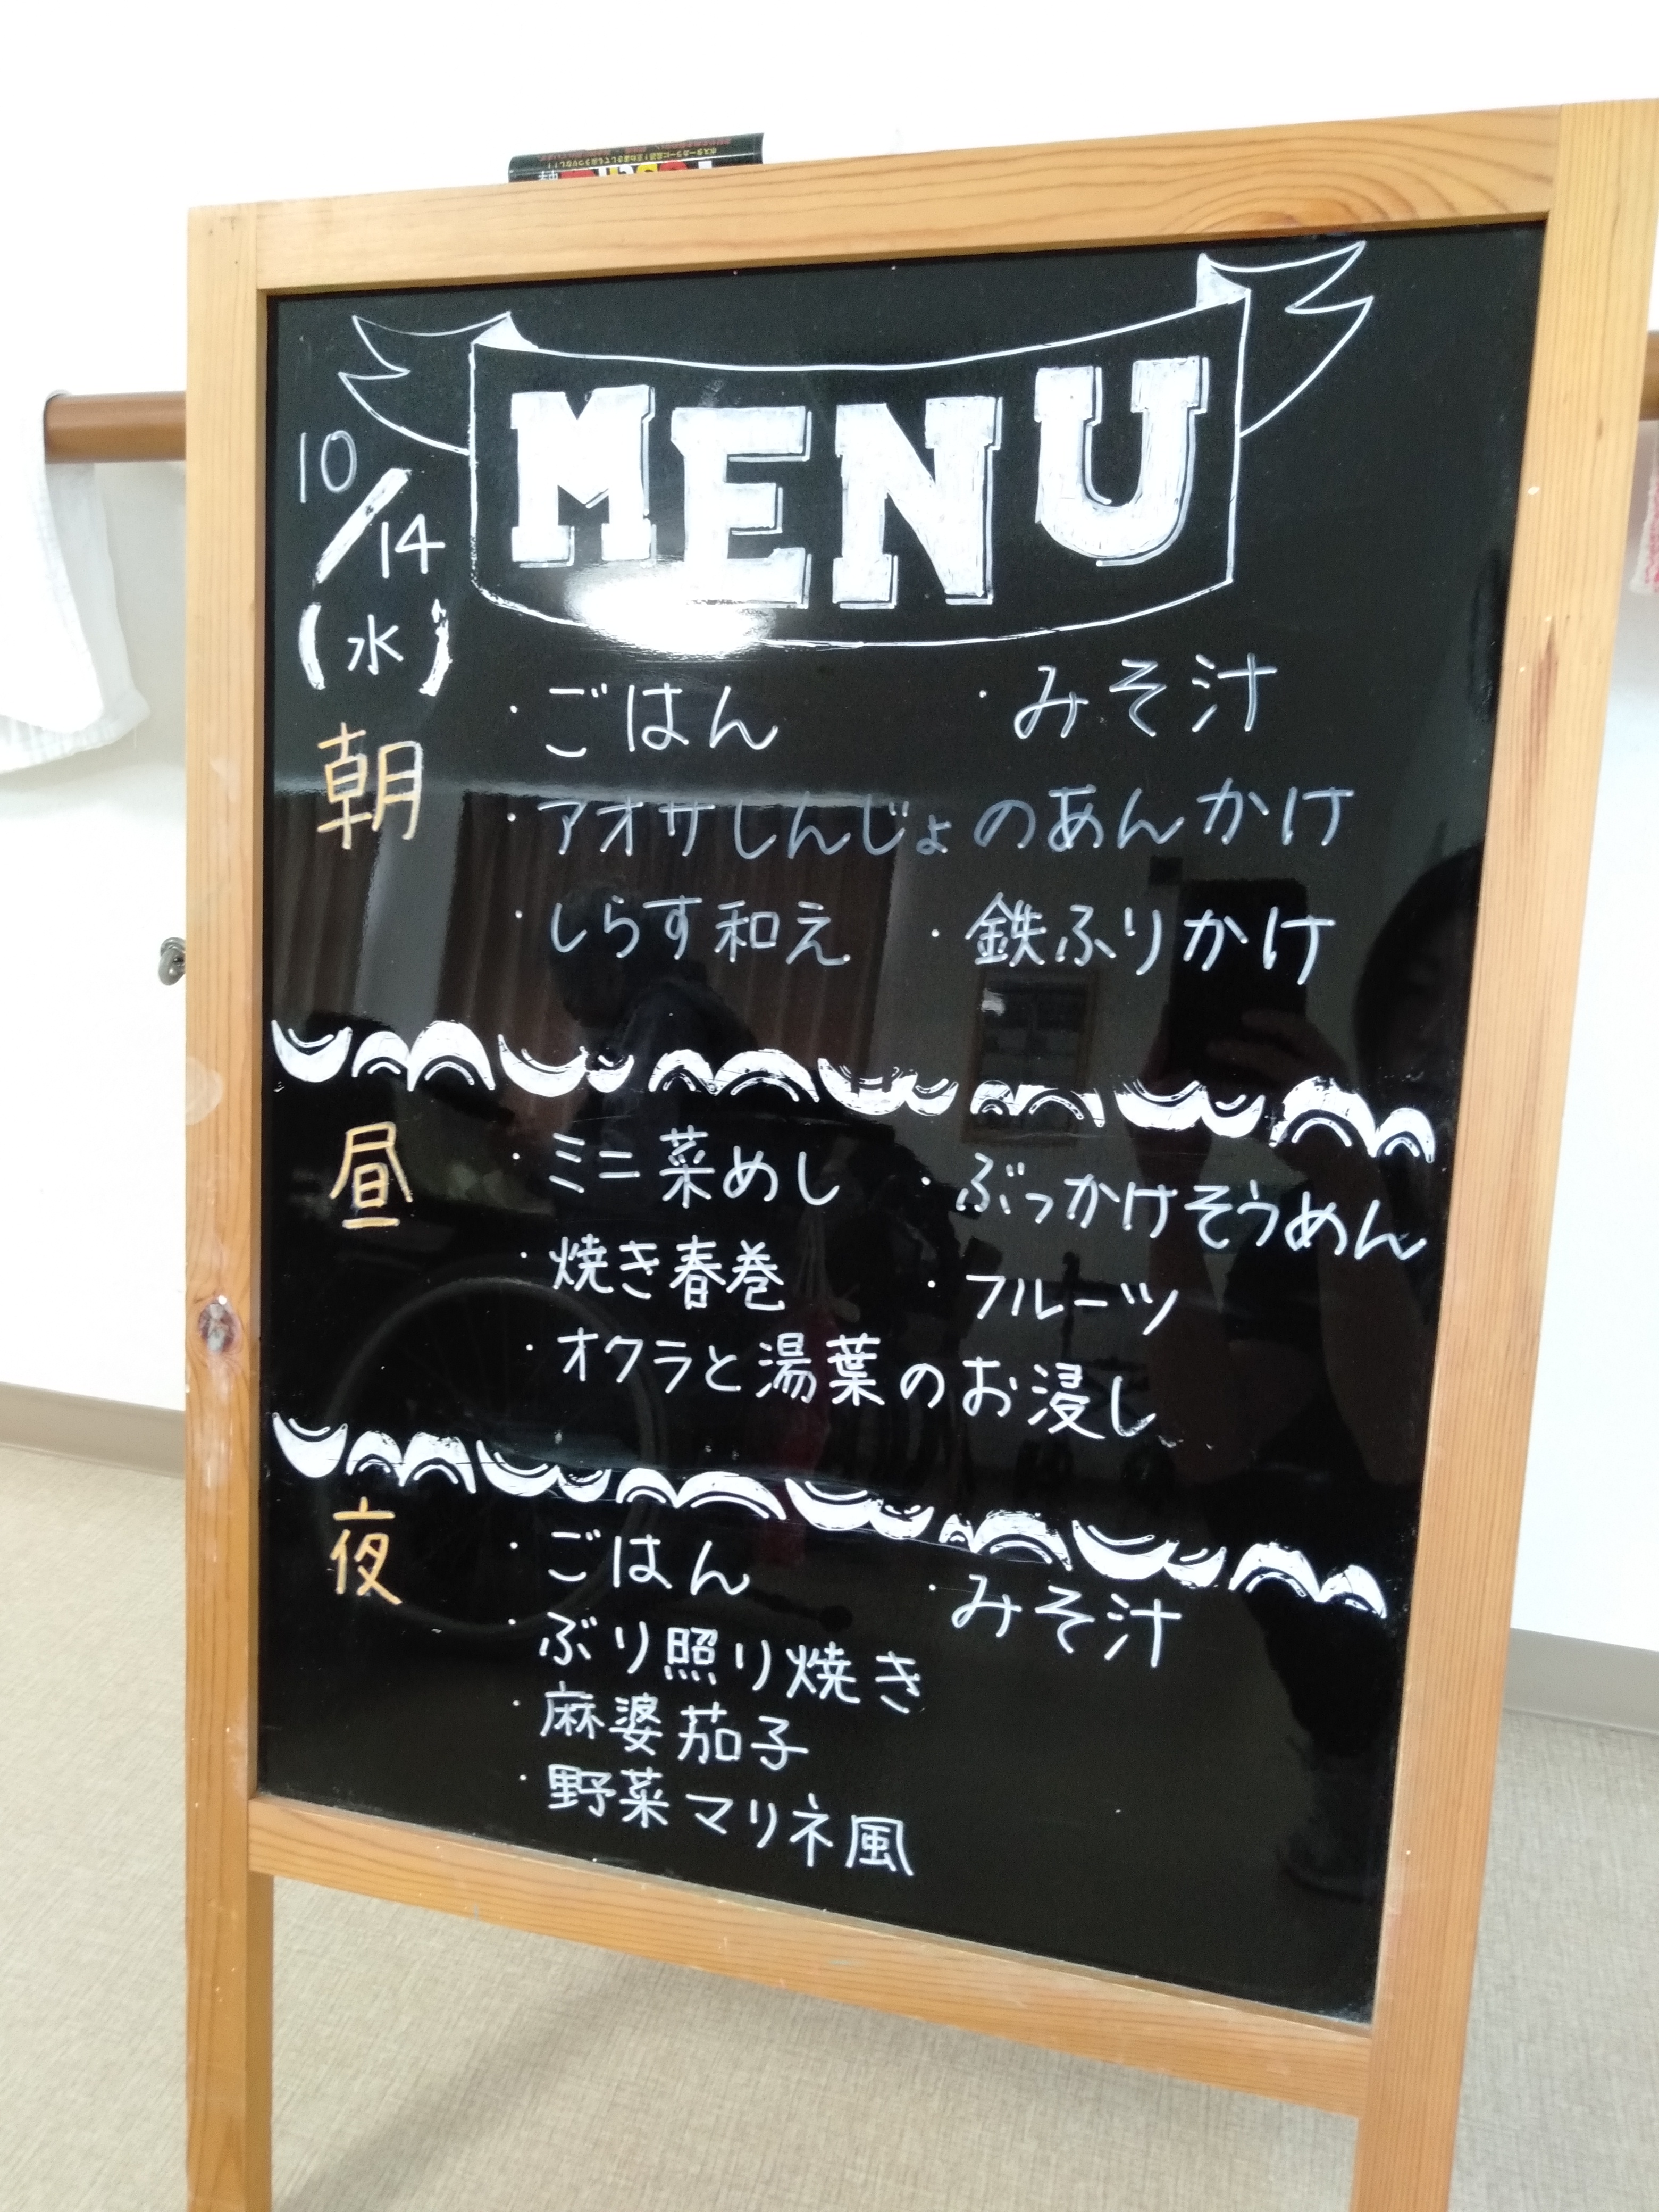 MENU
10/14
(水)
朝
・ごはん ・みそ汁
・アオサしんじょのあんかけ
・しらす和え ・鉄ふりかけ
昼
・ミニ菜めし ・ぶっかけそうめん
・焼き春巻 ・フルーツ
・オクラと湯葉のお浸し
夜
・ごはん ・みそ汁
・ぶり照り焼き
・麻婆茄子
・野菜マリネ風